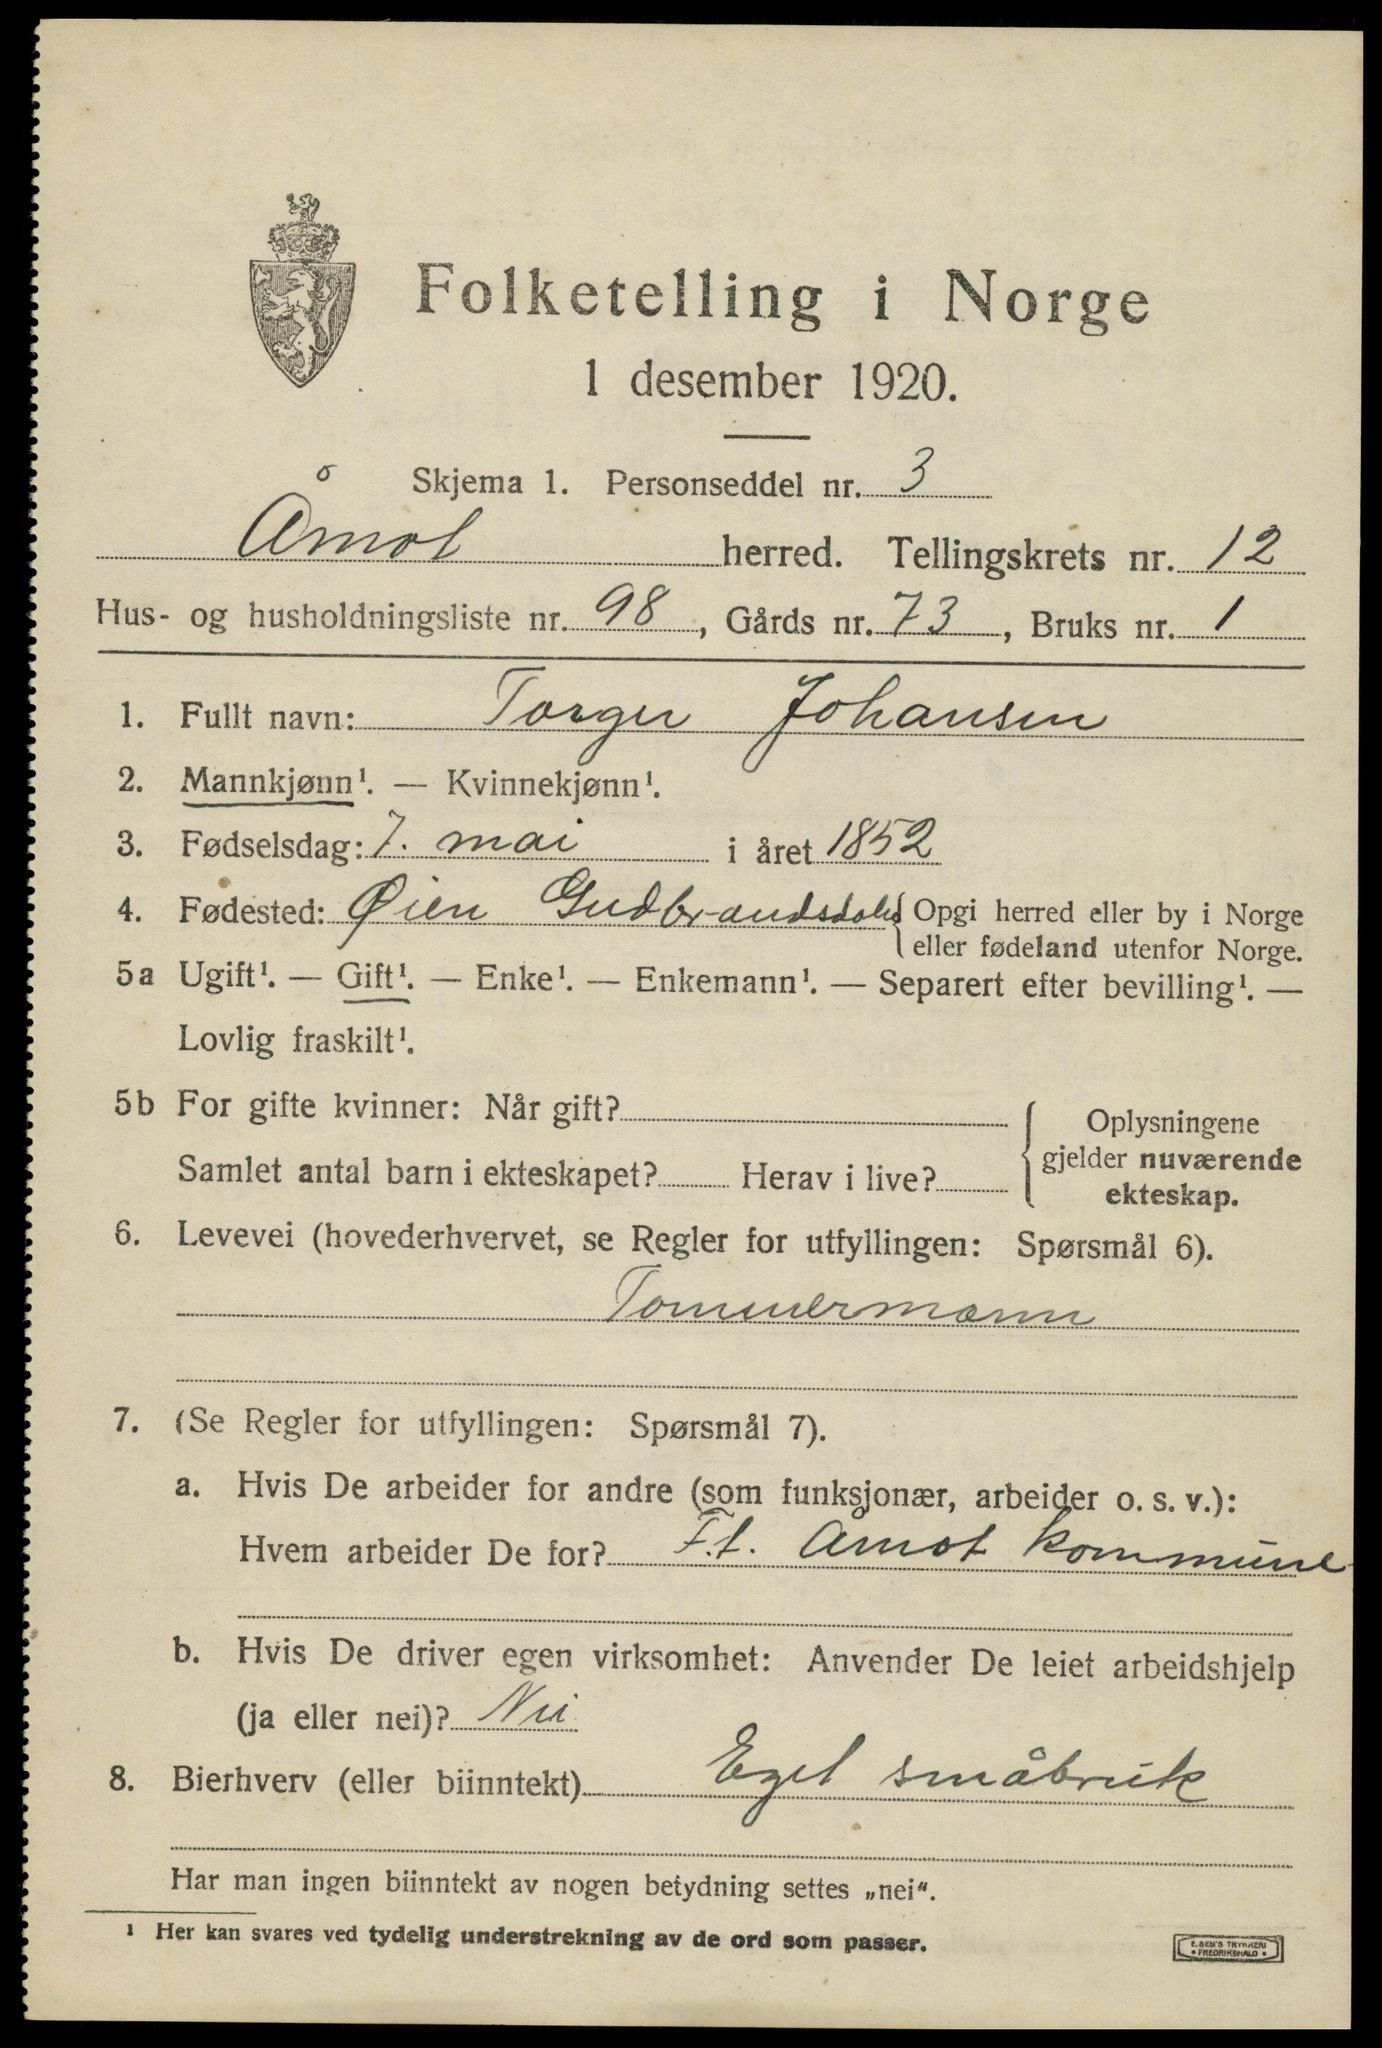 Folketelling i Norge
1 desember 1920.
Skjema 1. Personseddel nr. 3
Åmot herred. Tellingskrets nr. 12
Hus- og husholdningsliste nr. 98, Gårds nr. 73, Bruks nr. 1
1. Fullt navn: Torger Johansen
2. Mannkjønn¹. — Kvinnekjønn¹.
3. Fødselsdag: 7. mai i året 1852
4. Fødested: Øien Gudbrandsdalen { Opgi herred eller by i Norge
eller fødeland utenfor Norge.
5a Ugift¹. — Gift¹. — Enke¹. — Enkemann¹. — Separert efter bevilling¹. —
Lovlig fraskilt¹.
5b For gifte kvinner: Når gift?
Samlet antal barn i ekteskapet? Herav i live?
Oplysningene
gjelder nuværende
ekteskap.
6. Levevei (hovederhvervet, se Regler for utfyllingen: Spørsmål 6).
Tommermann
7. (Se Regler for utfyllingen: Spørsmål 7).
a. Hvis De arbeider for andre (som funksjonær, arbeider o. s. v.):
Hvem arbeider De for? F.t. Åmot kommune
b. Hvis De driver egen virksomhet: Anvender De leiet arbeidshjelp
(ja eller nei)? Nei
8. Bierhverv (eller biinntekt) Eget småbruk
Har man ingen biinntekt av nogen betydning settes „nei“.
¹ Her kan svares ved tydelig understrekning av de ord som passer.
E. SEM'S TRYKKERI
• FREDRIKSHALD •